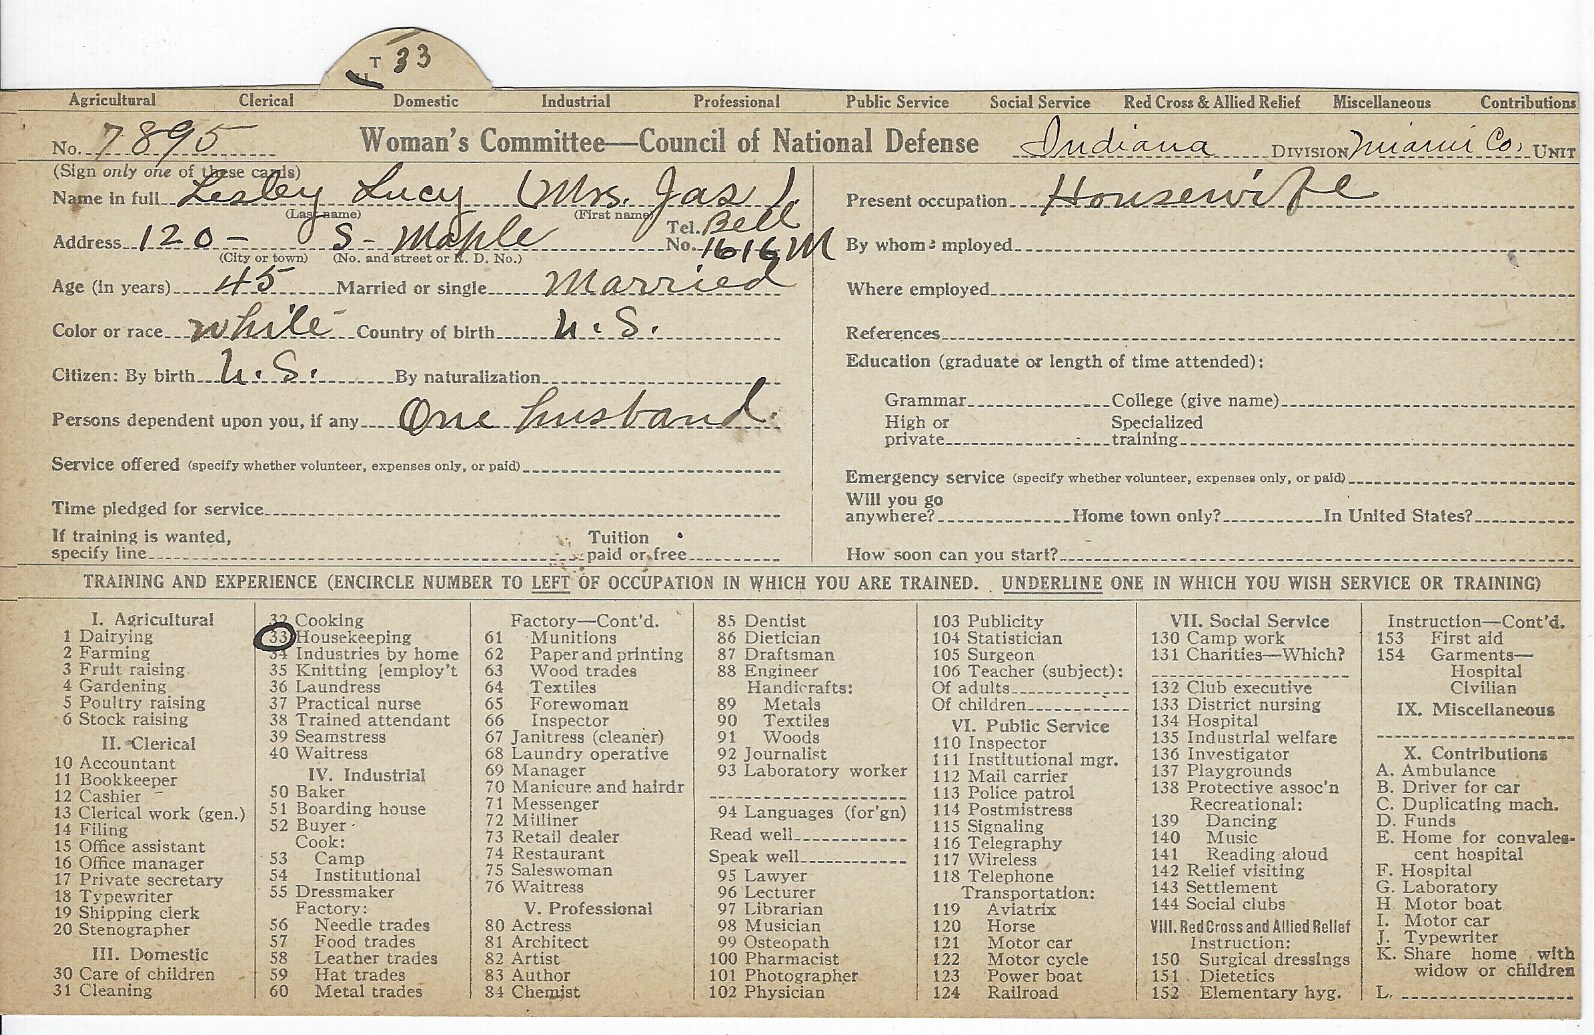 T 33
Agricultural Clerical Domestic Industrial Professional Public Service Social Service Red Cross & Allied Relief Miscellaneous Contributions
No. 7895 Woman's Committee—Council of National Defense Indiana DIVISION Miami Co. UNIT
(Sign only one of these cards)
Name in full Lesley Lucy (Mrs. Jas)
(Last name) (First name)
Address 120 - S- Maple Tel. No. Bell 1616 M
(City or town) (No. and street or R. D. No.)
Age (in years) 45 Married or single Married
Color or race White Country of birth U.S.
Citizen: By birth U.S. By naturalization
Persons dependent upon you, if any One husband.
Service offered (specify whether volunteer, expenses only, or paid)
Time pledged for service
If training is wanted,
specify line Tuition paid or free
Present occupation Housewife
By whom employed
Where employed
References
Education (graduate or length of time attended):
Grammar College (give name)
High or private Specialized training
Emergency service (specify whether volunteer, expenses only, or paid)
Will you go
anywhere? Home town only? In United States?
How soon can you start?
TRAINING AND EXPERIENCE (ENCIRCLE NUMBER TO LEFT OF OCCUPATION IN WHICH YOU ARE TRAINED. UNDERLINE ONE IN WHICH YOU WISH SERVICE OR TRAINING)
I. Agricultural
1 Dairying
2 Farming
3 Fruit raising
4 Gardening
5 Poultry raising
6 Stock raising
II. Clerical
10 Accountant
11 Bookkeeper
12 Cashier
13 Clerical work (gen.)
14 Filing
15 Office assistant
16 Office manager
17 Private secretary
18 Typewriter
19 Shipping clerk
20 Stenographer
III. Domestic
30 Care of children
31 Cleaning
32 Cooking
33 Housekeeping
34 Industries by home
35 Knitting [employ't
36 Laundress
37 Practical nurse
38 Trained attendant
39 Seamstress
40 Waitress
IV. Industrial
50 Baker
51 Boarding house
52 Buyer
Cook:
53 Camp
54 Institutional
55 Dressmaker
Factory:
56 Needle trades
57 Food trades
58 Leather trades
59 Hat trades
60 Metal trades
Factory—Cont'd.
61 Munitions
62 Paper and printing
63 Wood trades
64 Textiles
65 Forewoman
66 Inspector
67 Janitress (cleaner)
68 Laundry operative
69 Manager
70 Manicure and hairdr
71 Messenger
72 Milliner
73 Retail dealer
74 Restaurant
75 Saleswoman
76 Waitress
V. Professional
80 Actress
81 Architect
82 Artist
83 Author
84 Chemist
85 Dentist
86 Dietician
87 Draftsman
88 Engineer
Handicrafts:
89 Metals
90 Textiles
91 Woods
92 Journalist
93 Laboratory worker
94 Languages (for'gn)
Read well
Speak well
95 Lawyer
96 Lecturer
97 Librarian
98 Musician
99 Osteopath
100 Pharmacist
101 Photographer
102 Physician
103 Publicity
104 Statistician
105 Surgeon
106 Teacher (subject):
Of adults
Of children
VI. Public Service
110 Inspector
111 Institutional mgr.
112 Mail carrier
113 Police patrol
114 Postmistress
115 Signaling
116 Telegraphy
117 Wireless
118 Telephone
Transportation:
119 Aviatrix
120 Horse
121 Motor car
122 Motor cycle
123 Power boat
124 Railroad
VII. Social Service
130 Camp work
131 Charities—Which?
132 Club executive
133 District nursing
134 Hospital
135 Industrial welfare
136 Investigator
137 Playgrounds
138 Protective assoc'n
Recreational:
139 Dancing
140 Music
141 Reading aloud
142 Relief visiting
143 Settlement
144 Social clubs
VIII. Red Cross and Allied Relief
Instruction:
150 Surgical dressings
151 Dietetics
152 Elementary hyg.
Instruction—Cont'd.
153 First aid
154 Garments—
Hospital
Civilian
IX. Miscellaneous
X. Contributions
A. Ambulance
B. Driver for car
C. Duplicating mach.
D. Funds
E. Home for convales-
cent hospital
F. Hospital
G. Laboratory
H. Motor boat
I. Motor car
J. Typewriter
K. Share home with
widow or children
L.